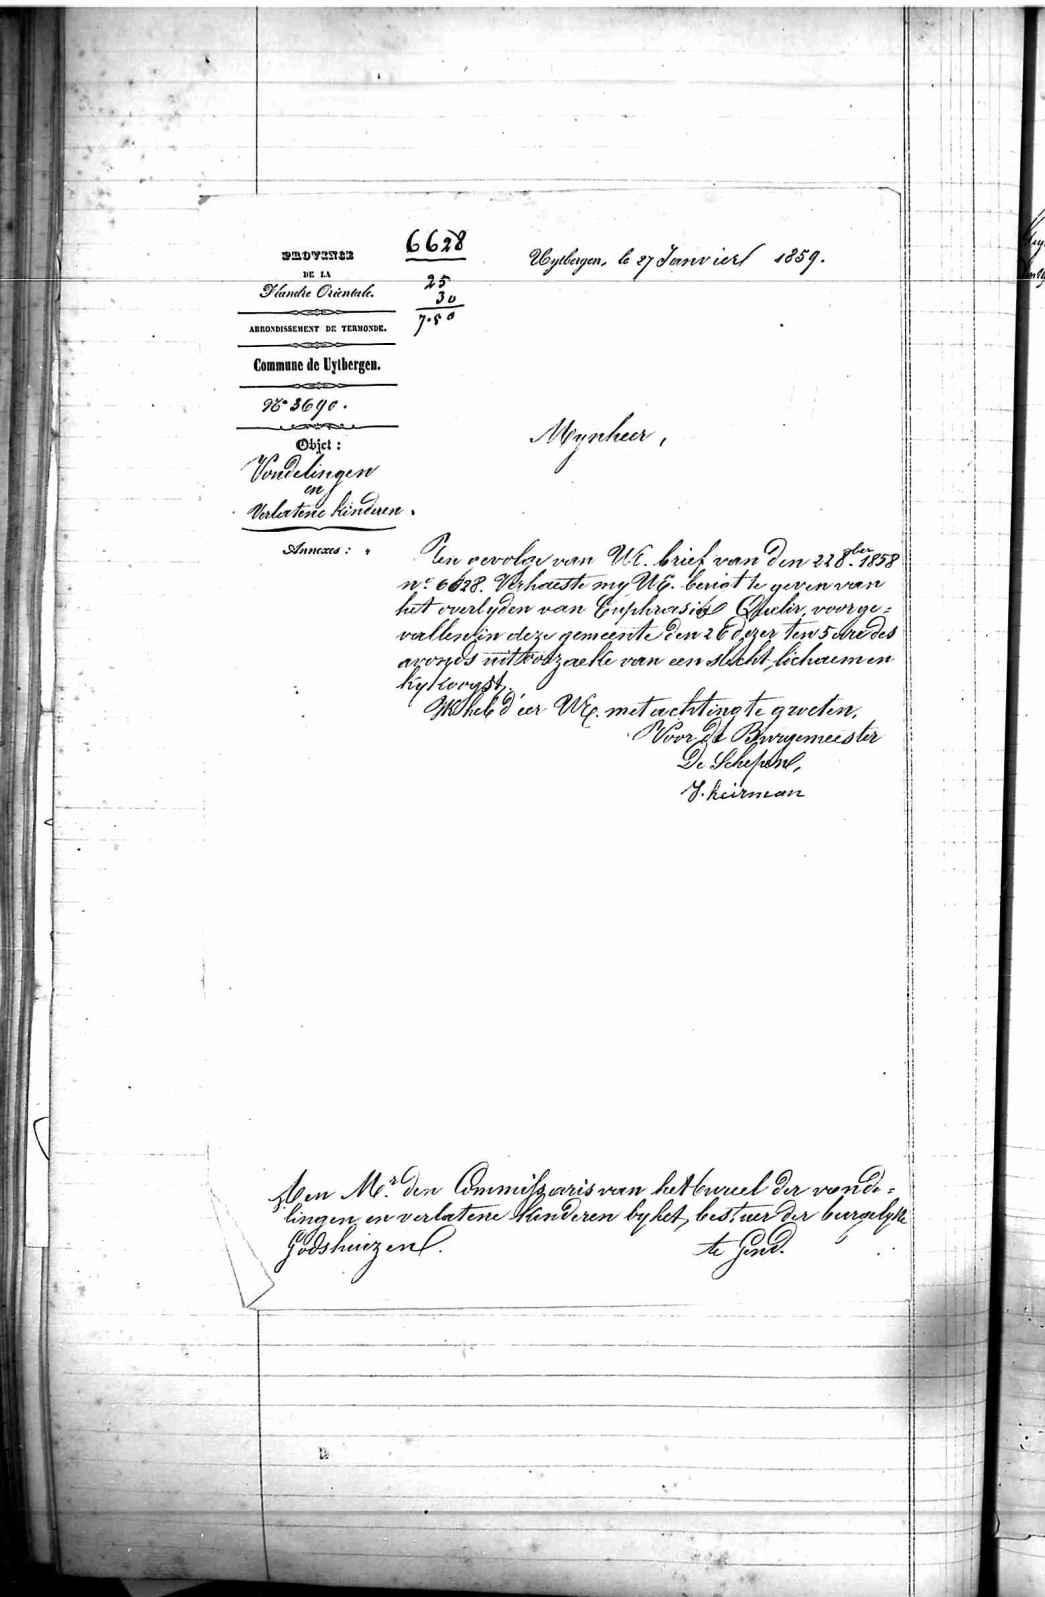 6628
PROVINCE
DE LA
Flandre Orientale.
25
30
7.50
Uytbergen, le 27 Janvier 1859.
ARRONDISSEMENT DE TERMONDE.
Commune de Uytbergen.
N.º 3690.
Objet :
Vondelingen
en
Verlatene kinderen.
Annexes :
Mynheer,
Ten gevolge van UE. brief van den 22 8ber. 1858
n.º 6628. Verhaeste my UE. berigt te geven van
het overlyden van Euphrasie voorge=
vallen in deze gemeente den 26 dezer ten 5 ure des
avonds uit oorzaeke van een slecht lichaem en
Ik heb d'eer UE. met achting te groeten.
Voor de Burgemeester
De Schepen,
J. Keirman
Aen M.r den Commissaris van het bureel der vonde=
lingen en verlatene kinderen by het bestuer der burgelyke
Godshuizen. te Gend.